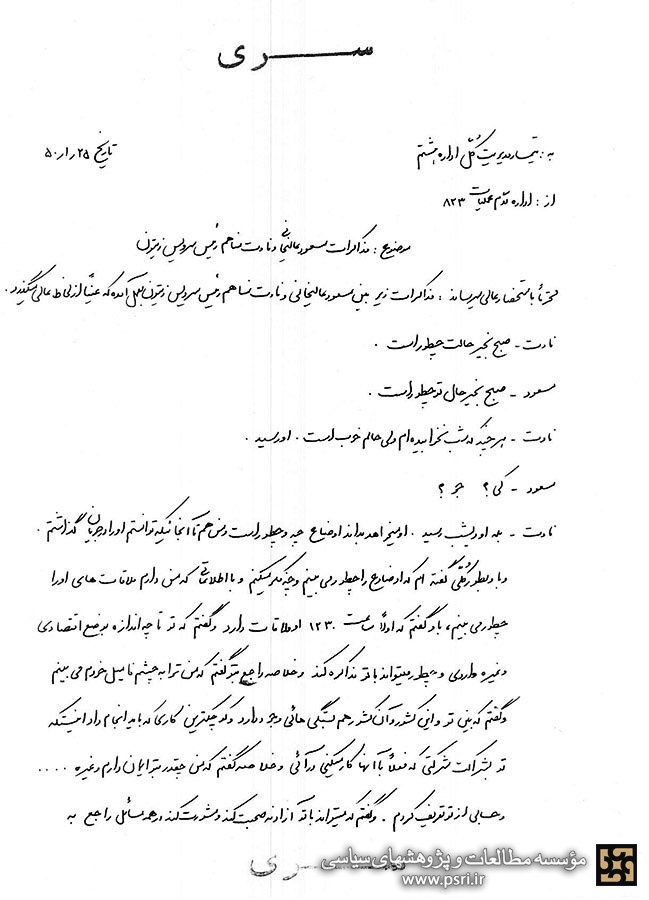 سری
به : تیمسار مدیریت کل اداره هشتم
تاریخ ۲۵ر۱ر۵۰
از : اداره دوم عملیات ۸۲۳
موضوع : مذاکرات مسعود عالیخانی و نادت نساهم رئیس سرویس زیتون
محترماً باستحضار عالی میرساند : مذاکرات زیر بین مسعود عالیخانی و نادت نساهم رئیس سرویس زیتون بعمل آمده که عیناً از لحاظ عالی میگذرد .
نادت - صبح بخیر حالت چطور است .
مسعود - صبح بخیر حال تو چطور است .
نادت - هر چند که شب نخوابیده‌ام ولی حالم خوب است . او رسید .
مسعود - کی ؟
نادت - بله او دیشب رسید . او میخواهد بداند اوضاع چه و چطور است و من هم تا آنجائیکه توانستم او را در جریان گذاشتم .
و باو بطور کلی گفته‌ام که اوضاع را چطور می بینم و چه فکر میکنم و با اطلاعاتی که من دارم ملاقات های او را
چطور می بینم ، باو گفتم که اولاً ساعت ۱۲۳۰ او ملاقات دارد و گفتم که تو تا چه اندازه بوضع اقتصادی
و غیره واردی و چطور میتواند با تو مذاکره کند و خلاصه راجع بتو گفتم که من ترا به چشم فامیل خودم می بینم
و گفتم که بین تو و این کشور و آن کشور هم بستگی هائی وجود دارد و کوچکترین کاری که باید انجام داد اینستکه
تو بشراکت شرکتی که فعلاً با آنها کار میکنی درآئی و خلاصه گفتم که من چقدر بتو ایمان دارم و غیره ....
و حسابی از تو تعریف کردم . و گفتم که میتواند با تو آزادانه صحبت کند و مشورت کند در همه مسائل راجع به
سری
مؤسسه مطالعات و پژوهشهای سیاسی
www.psri.ir